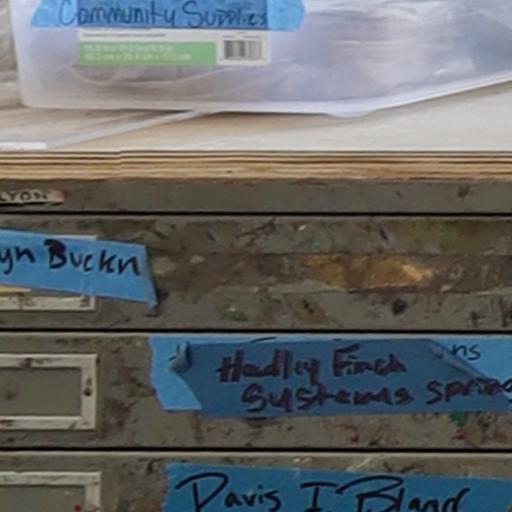 Community Supplies
yn Buckn
ns
Hadley Finch
Systems spring
Davis I Bland